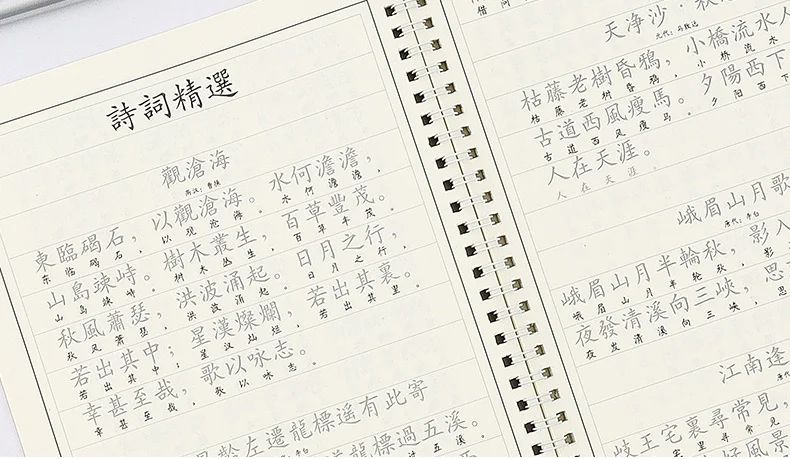 詩詞精選
觀滄海
两汉：曹操
東臨碣石，以觀滄海。水何澹澹，
东临碣石，以观沧海。水何澹澹，
山島竦峙。樹木叢生，百草豐茂。
山岛竦峙。树木丛生，百草丰茂。
秋風蕭瑟，洪波涌起。日月之行，
秋风萧瑟，洪波涌起。日月之行，
若出其中；星漢燦爛，若出其裏。
若出其中；星汉灿烂，若出其里。
幸甚至哉，歌以咏志。
幸甚至哉，歌以咏志。
齡左遷龍標遥有此寄
道龍標過五溪。
五溪。
借问
天净沙·秋
元代：马致远
枯藤老樹昏鴉，小橋流水人
枯藤老树昏鸦，小桥流水
古道西風瘦馬。夕陽西下
古道西风瘦马。夕阳西下
人在天涯。
人在天涯。
峨眉山月歌
唐代：李白
峨眉山月半輪秋，影入
峨眉山月半轮秋，影
夜發清溪向三峽，思
夜发清溪向三峡，思
江南逢
岐王宅裏尋常見，
宅里寻常见，
好風景